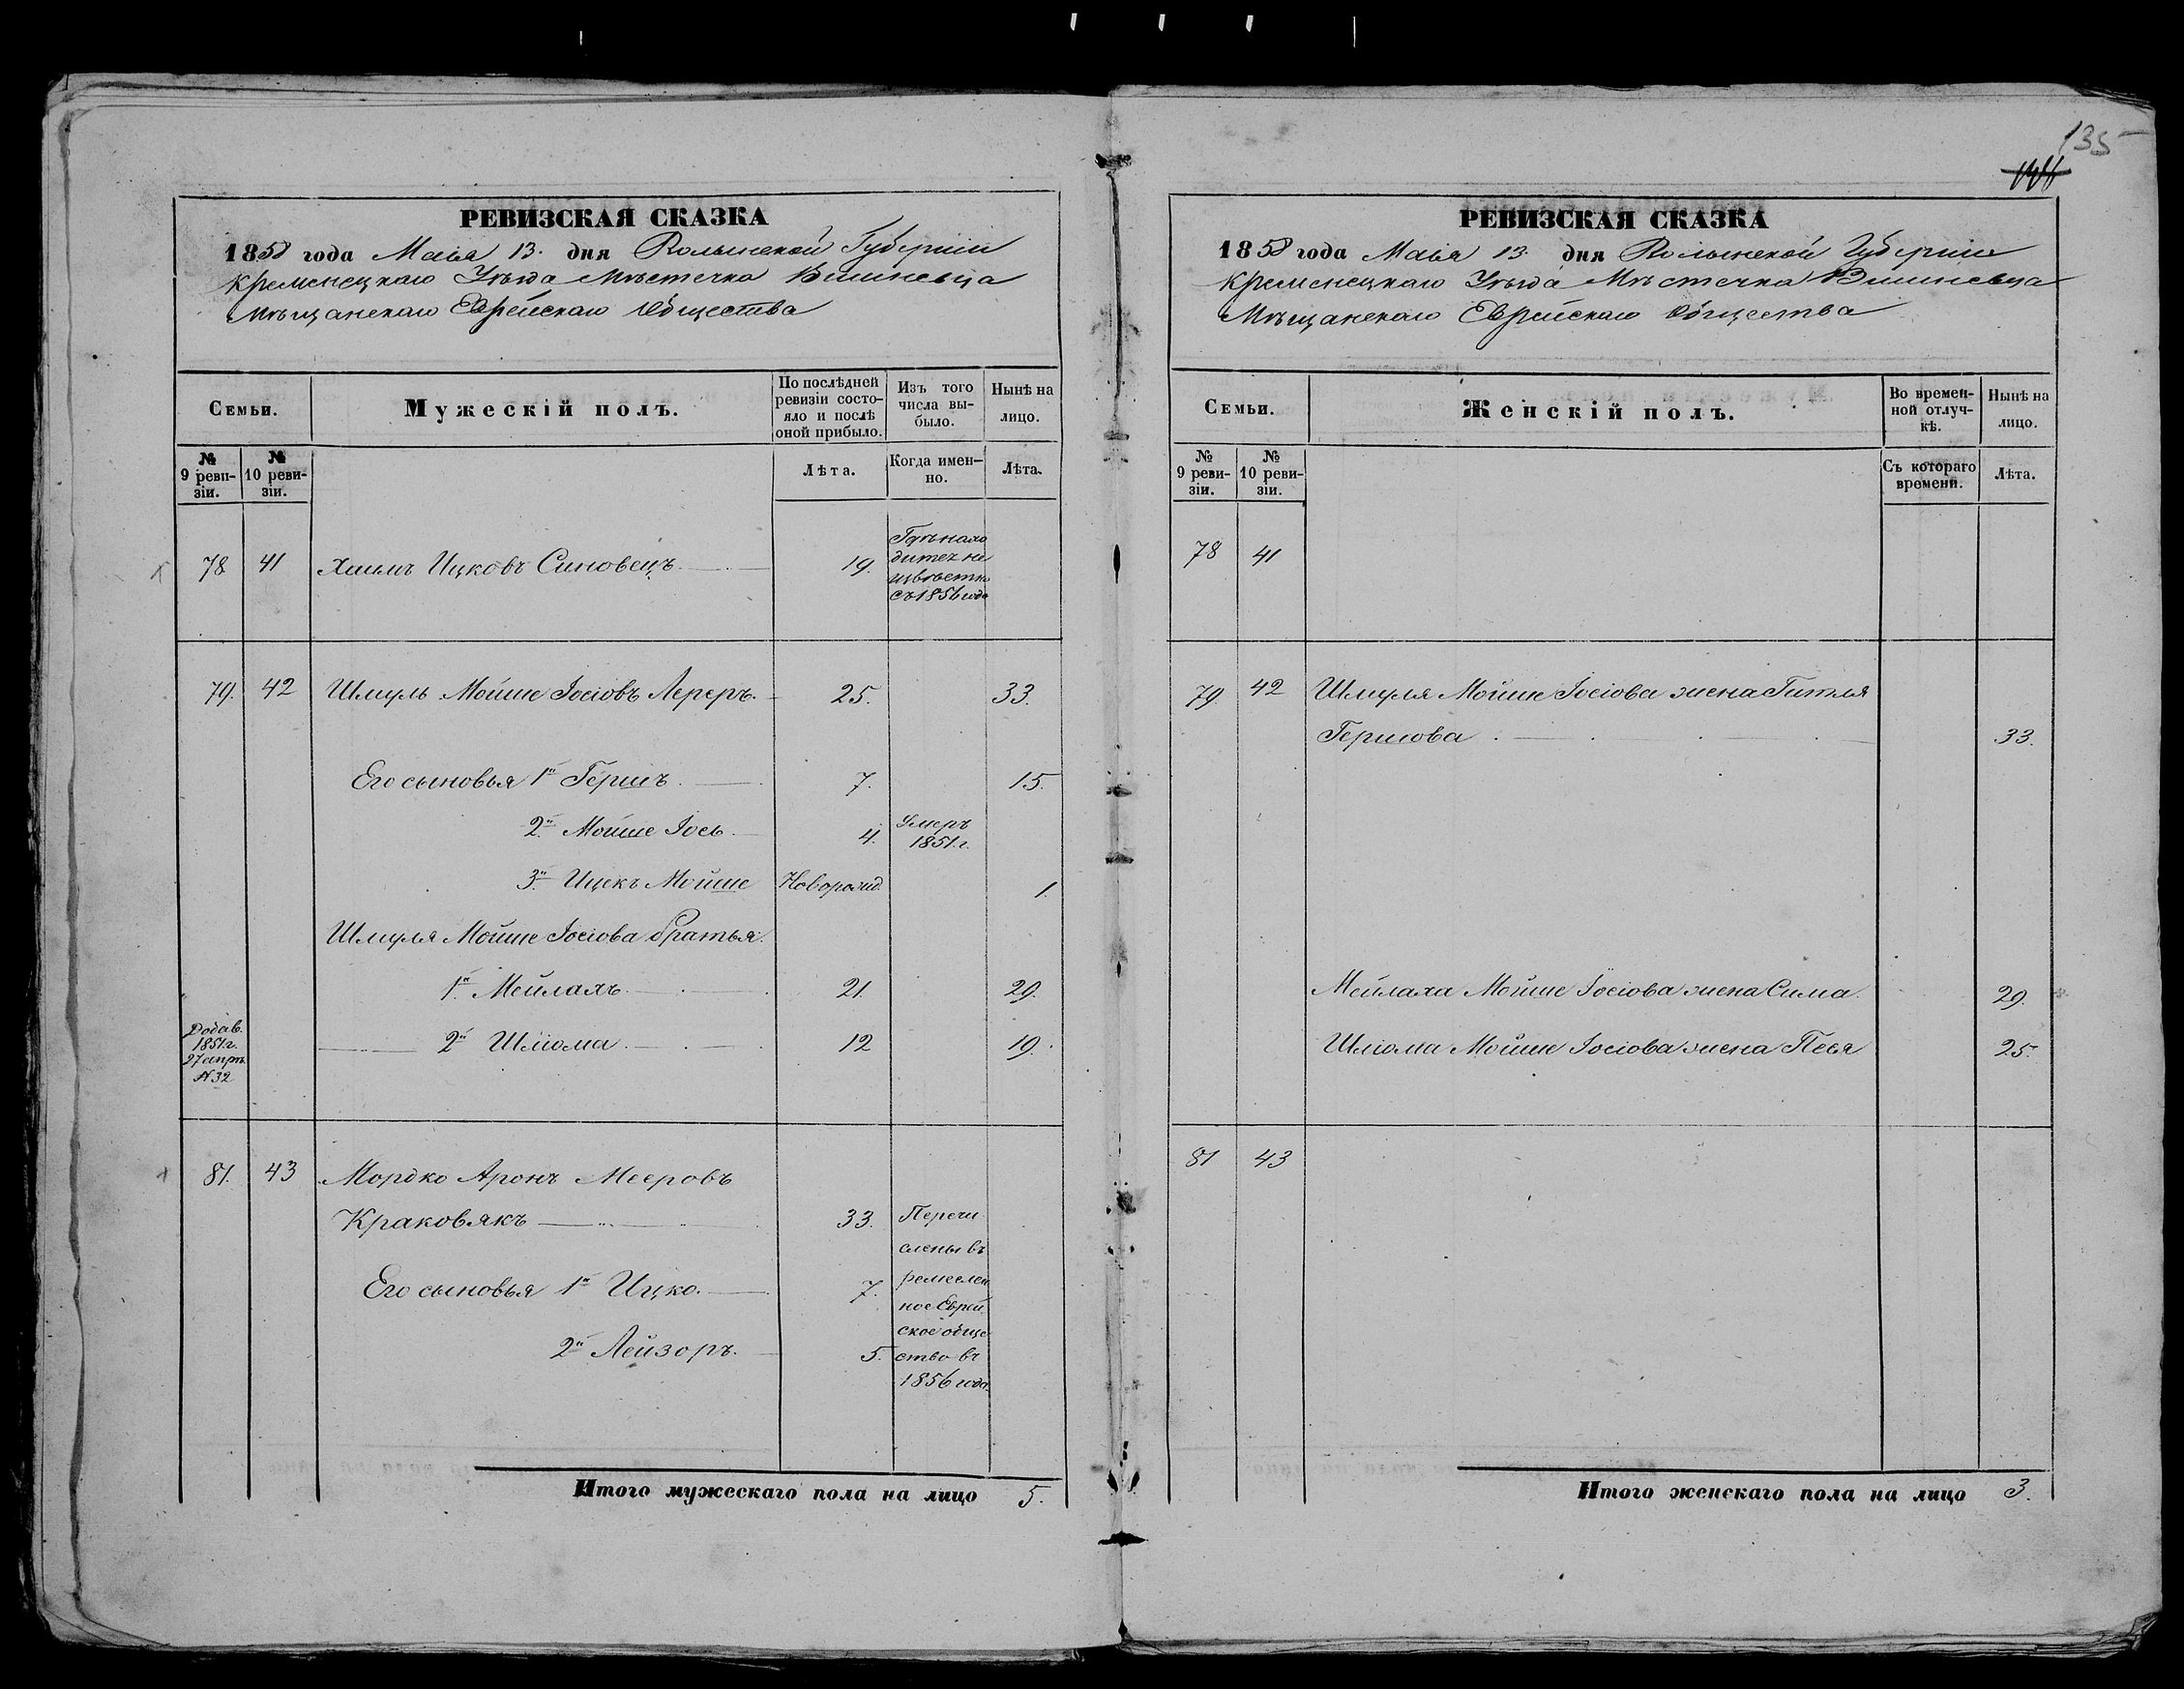 135
РЕВИЗСКАЯ СКАЗКА
1858 года Маія 13. дня Волынской Губерніи
Кременецкаго Уѣзда Мѣстечка Вишневца
Мѣщанскаго Еврейскаго Общества
Семьи.
Мужескій полъ.
По послѣдней
ревизіи состо-
яло и послѣ
оной прибыло.
Изъ того
числа вы-
было.
Нынѣ на
лицо.
№
9 реви-
зіи.
№
10 реви-
зіи.
Лѣта.
Когда имен-
но.
Лѣта.
78 41 Хаимъ Ицковъ Синовецъ. 19.
Гдѣ нахо
дится не
извѣстно
съ 1856 года
79. 42 Шмуль Мойше Іосіовъ Лереръ. 25. 33.
Его сыновья 1й Гершъ. 7. 15.
2й Мойше Іось. 4. Умеръ
1851 г.
3й Ицекъ Мойше Новорожд 1.
Шмуля Мойше Іосіова братья.
1й Мейлахъ. 21. 29.
Добав.
1851 г.
27 апрѣ.
N 32
2й Шліома. 12 19.
81. 43 Мордко Аронъ Мееровъ
Краковякъ 33.
Его сыновья 1й Ицко. 7.
2й Лейзоръ. 5.
Перечи
слены въ
ремеслен
ное Еврей
ское обще
ство въ
1856 года.
Итого мужескаго пола на лицо 5.
РЕВИЗСКАЯ СКАЗКА
1858 года Маія 13. дня Волынской Губерніи
Кременецкаго Уѣзда Мѣстечка Вишневца
Мѣщанскаго Еврейскаго Общества
Семьи.
Женскій полъ.
Во времен-
ной отлуч-
кѣ.
Нынѣ на
лицо.
№
9 реви-
зіи.
№
10 реви-
зіи.
Съ котораго
времени.
Лѣта.
78 41
79. 42 Шмуля Мойше Іосіова жена Гитля
Гершова 33.
Мейлаха Мойше Іосіова жена Сима. 29.
Шліома Мойше Іосіова жена Песя 25.
81 43
Итого женскаго пола на лицо 3.